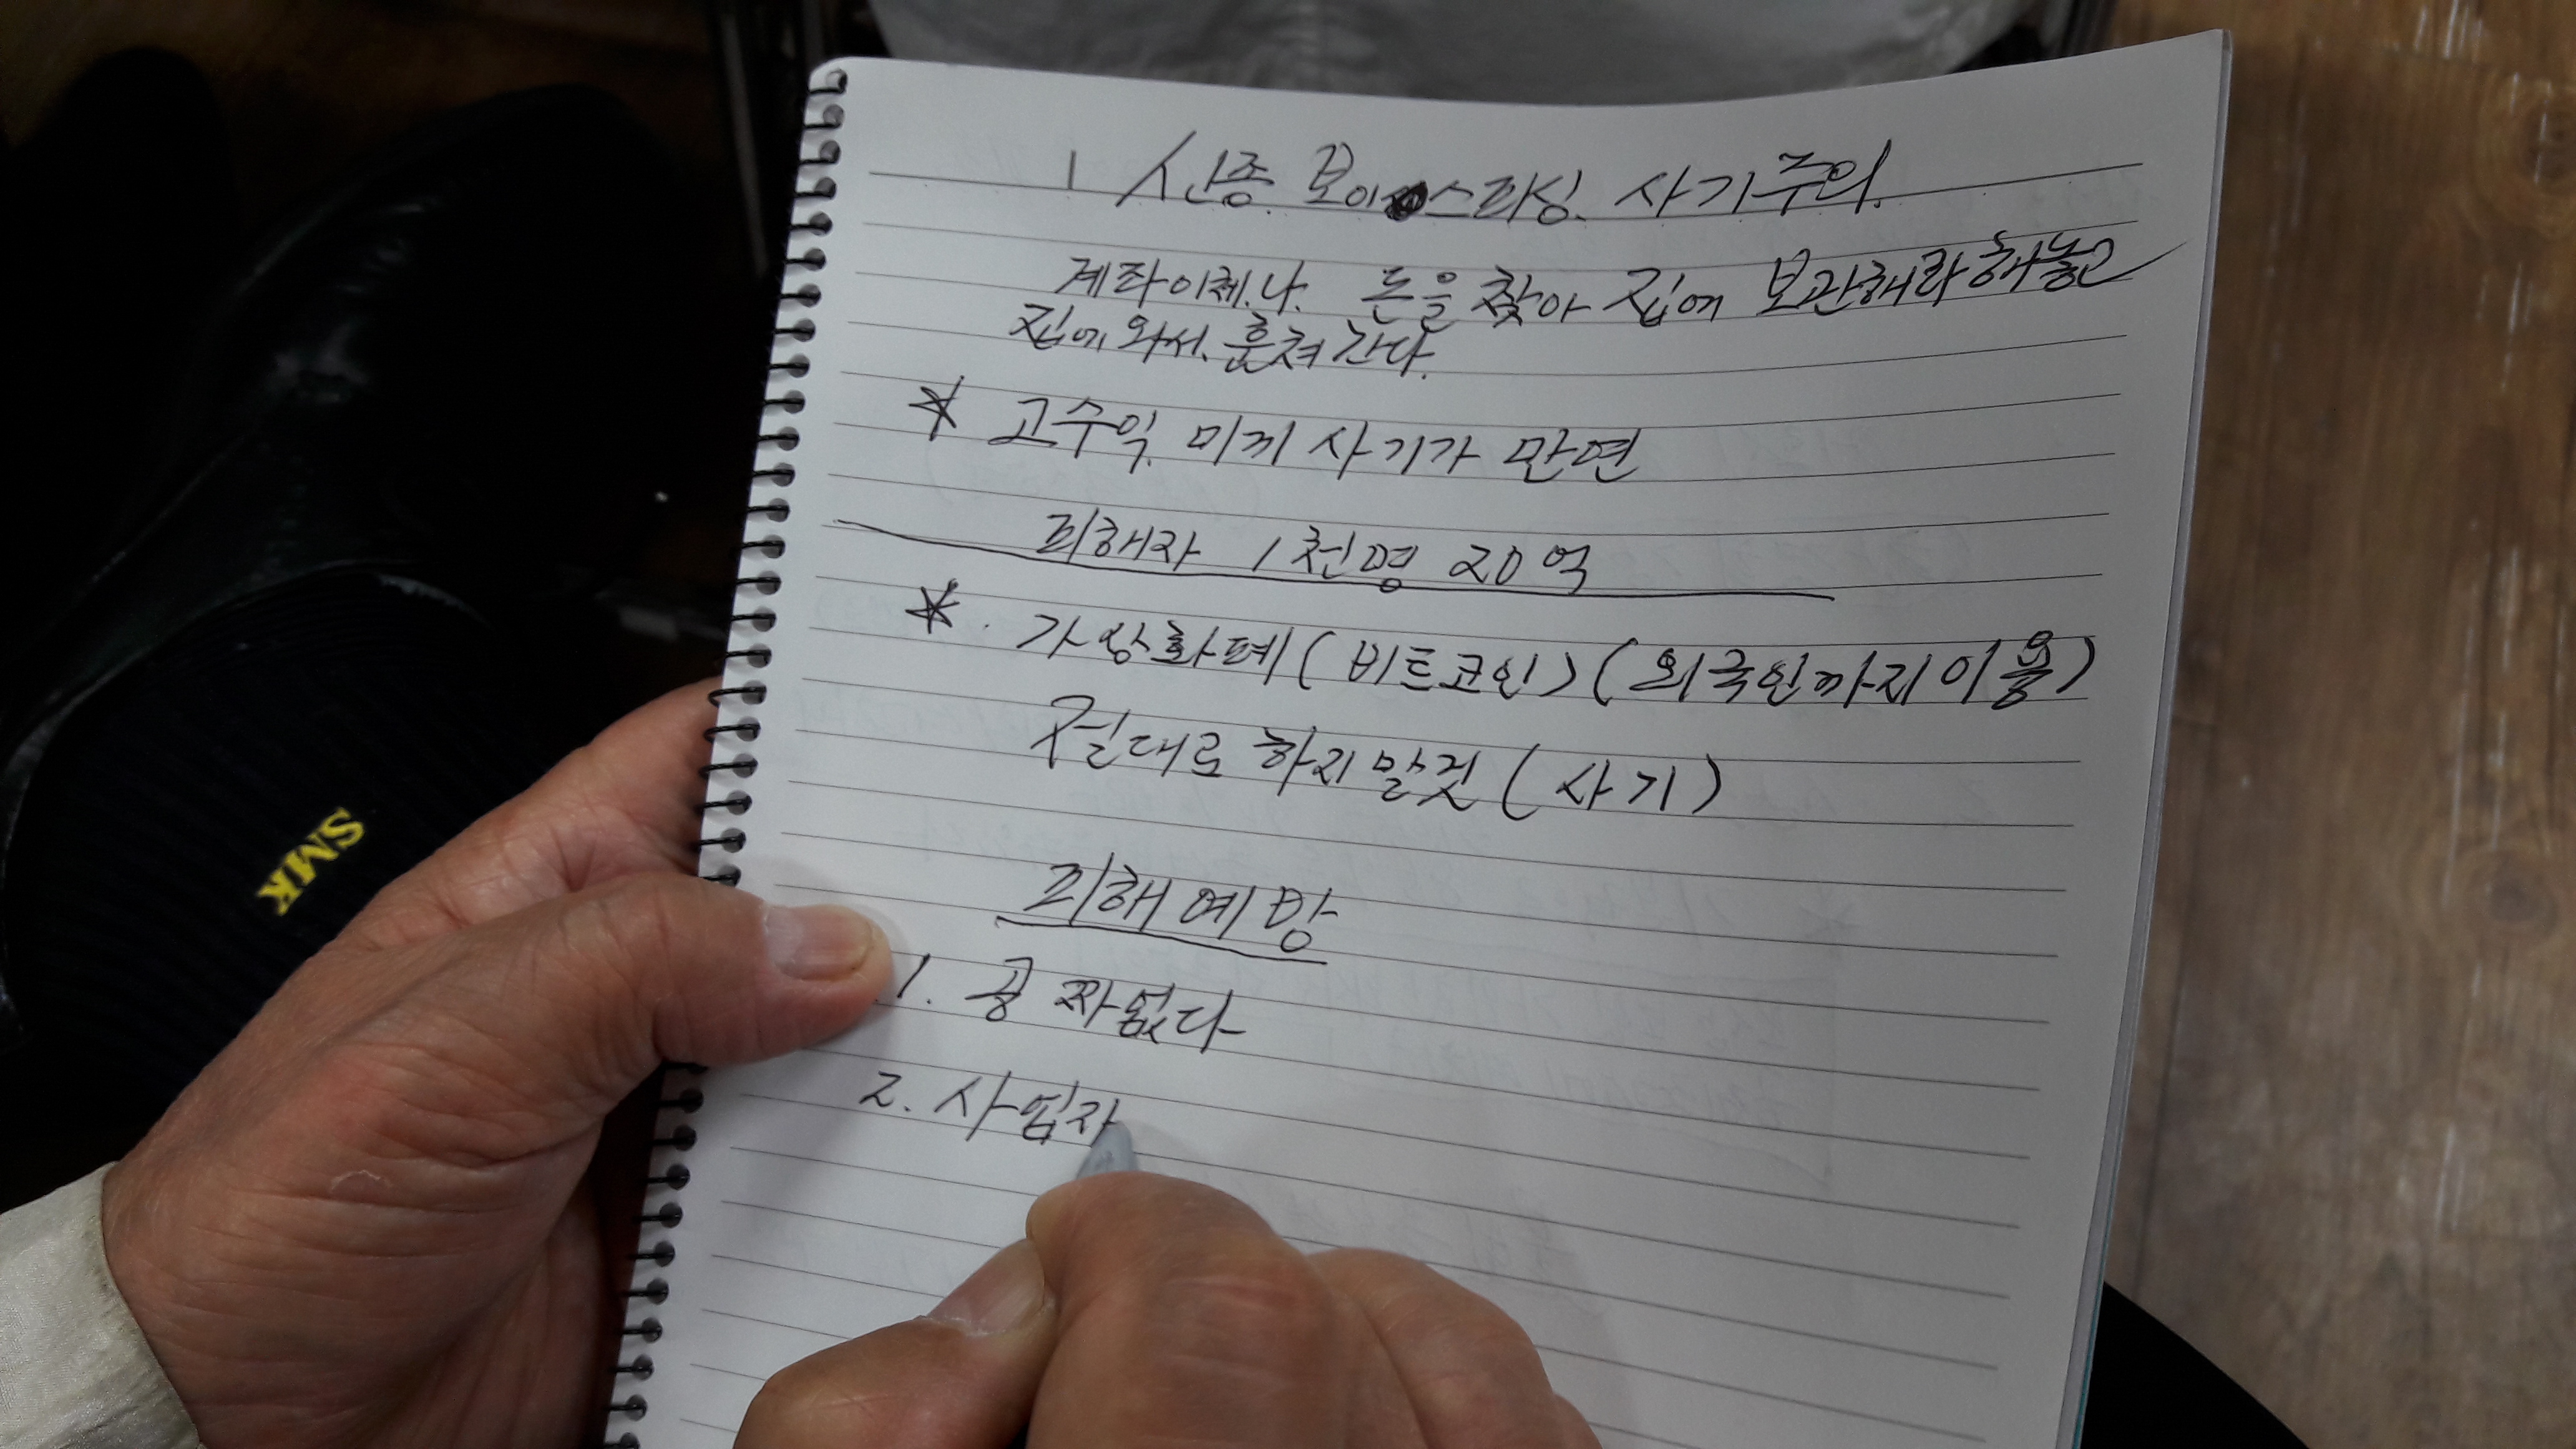 1 신종 보이스피싱. 사기주의.
계좌이체.나. 돈을 찾아 집에 보관해라 해놓고
집에 와서. 훔쳐 간다.
* 고수익. 미끼 사기가 만연
피해자 1천명 20억
*. 가상화폐(비트코인)(외국인까지 이용)
절대로 하지말것(사기)
피해예방
1. 공짜없다
2. 사업자
SMK